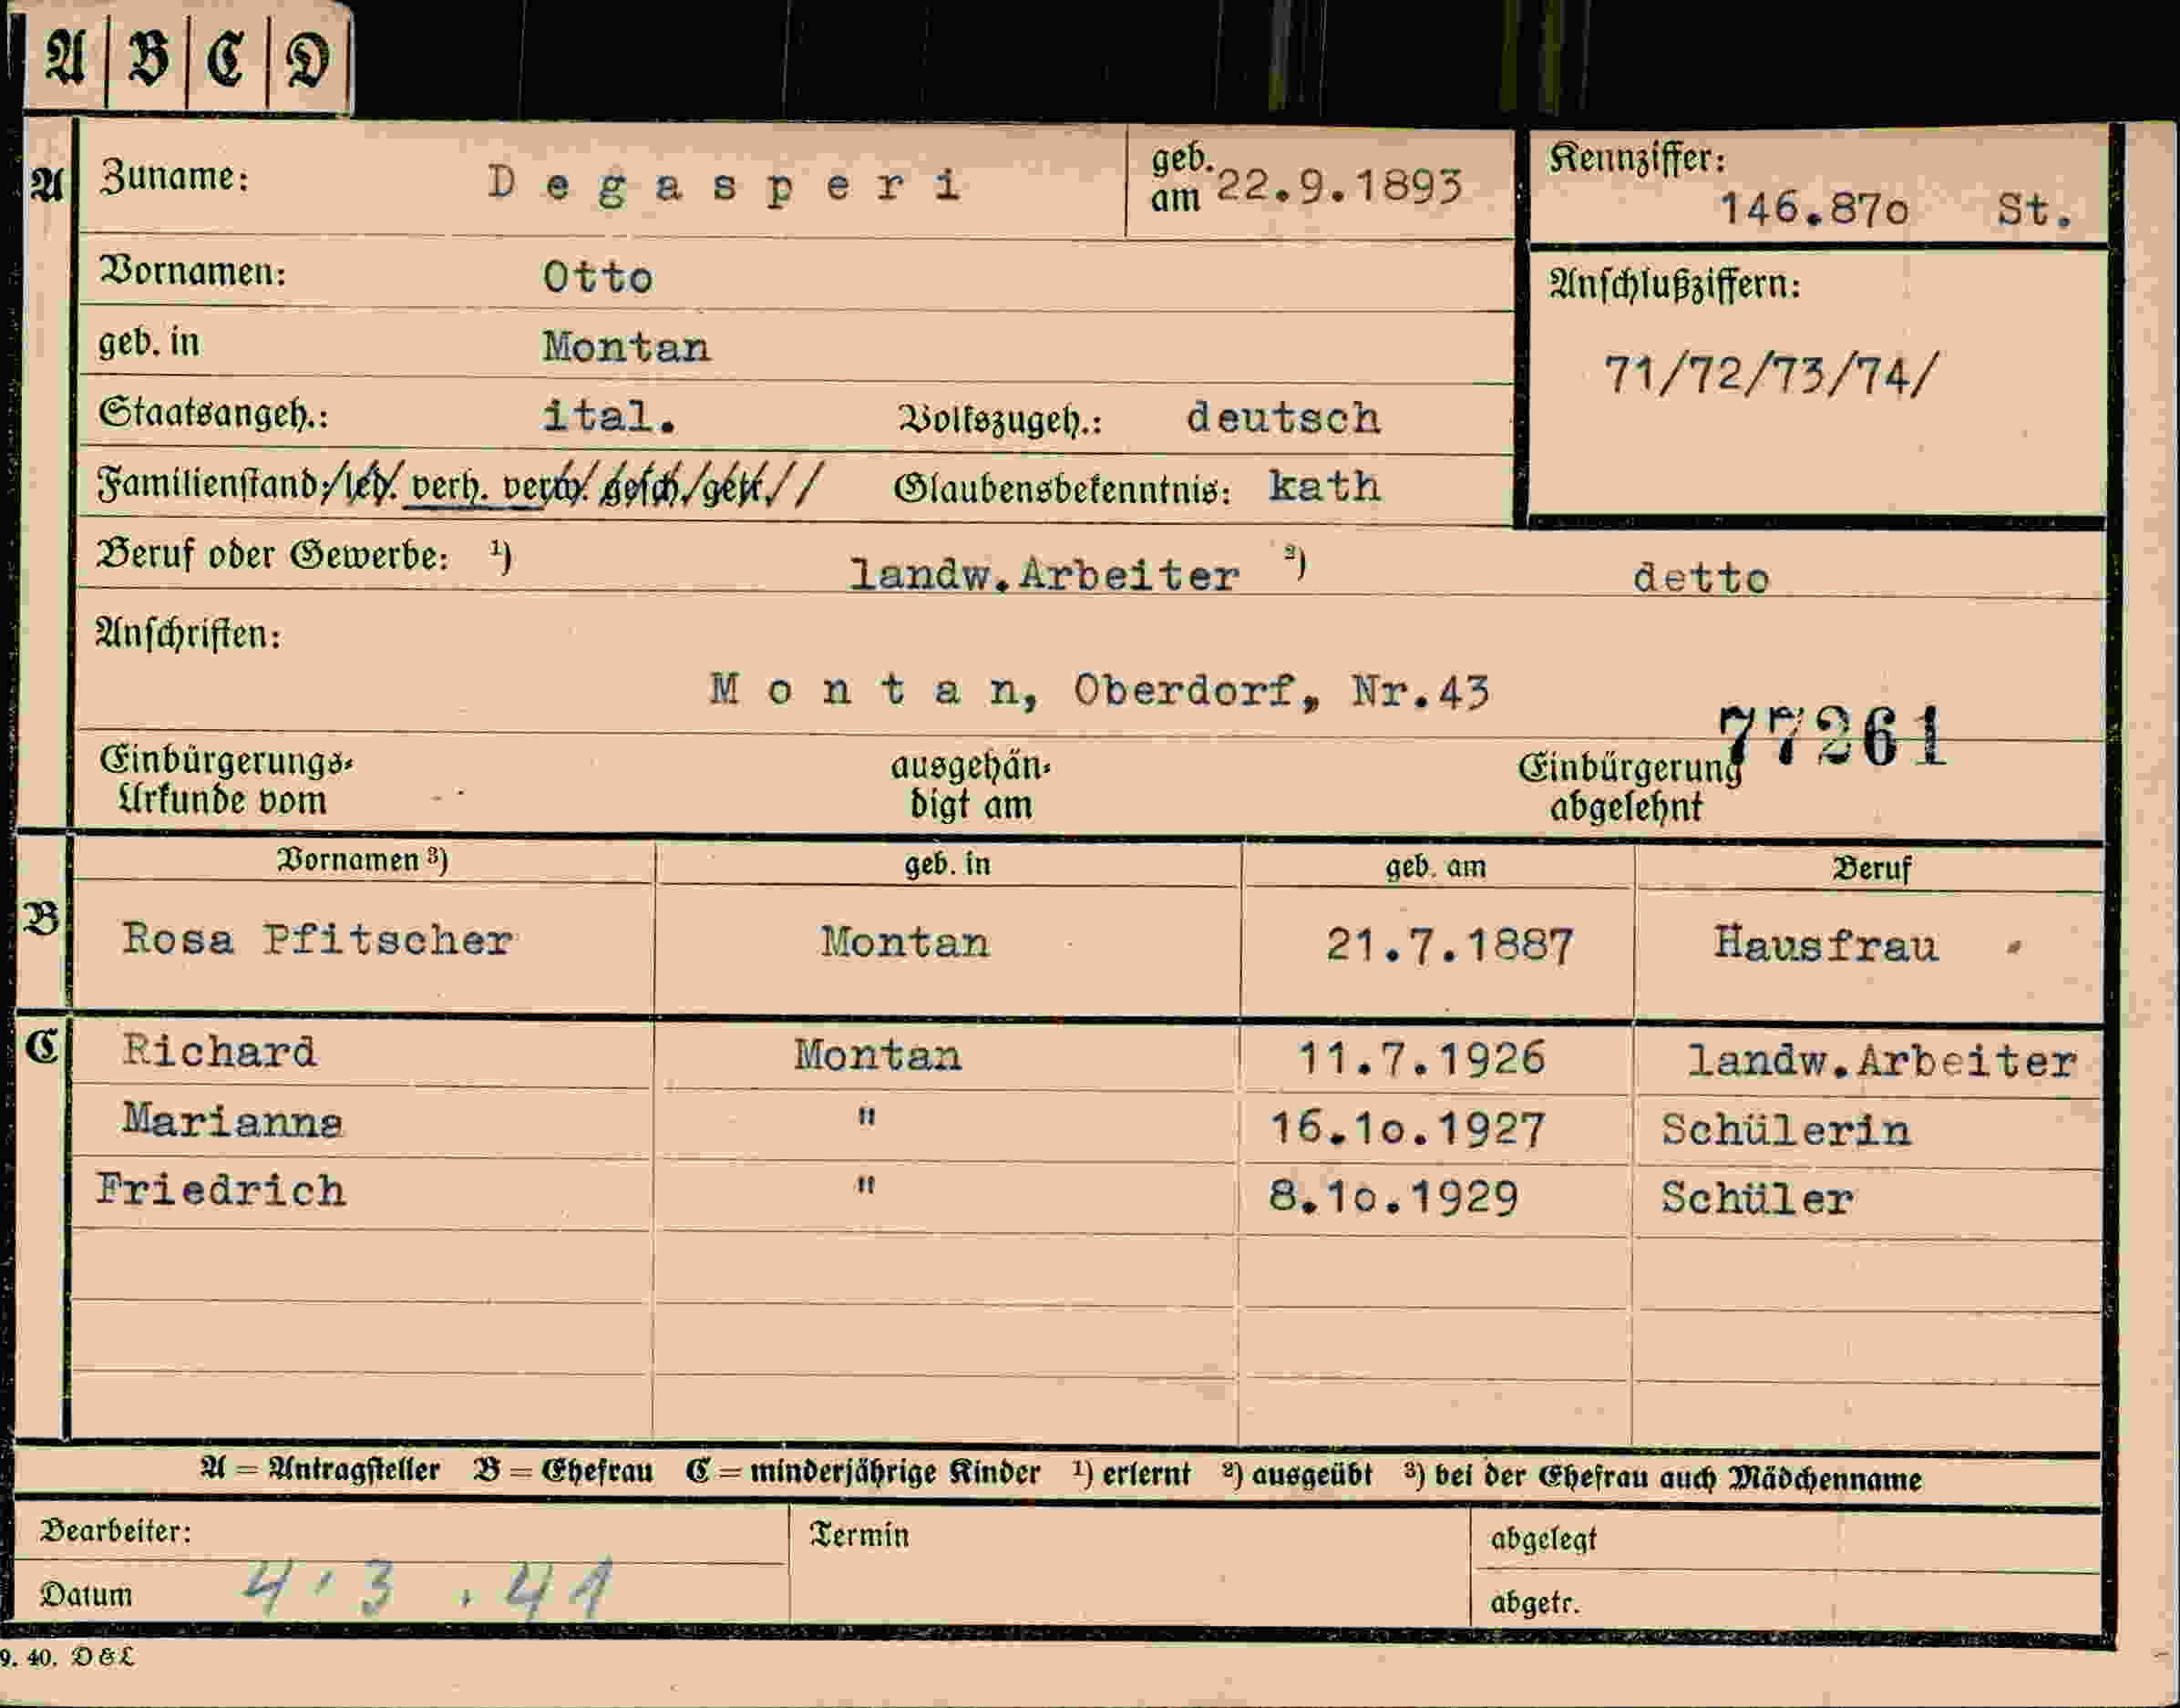 A B C D
A Zuname: Degasperi geb. am 22.9.1893 Kennziffer: 146.87o St.
Vornamen: Otto Anschlußziffern:
geb. in Montan 71/72/73/74/
Staatsangeh.: ital. Volkszugeh.: deutsch
Familienstand: led. verh. verw. gesch. getr. Glaubensbekenntnis: kath
Beruf oder Gewerbe: 1) landw.Arbeiter 2) detto
Anschriften:
Montan, Oberdorf, Nr.43
77261
Einbürgerungs-Urkunde vom ausgehändigt am Einbürgerung abgelehnt
Vornamen 3) geb. in geb. am Beruf
B Rosa Pfitscher Montan 21.7.1887 Hausfrau
C Richard Montan 11.7.1926 landw.Arbeiter
Marianne " 16.1o.1927 Schülerin
Friedrich " 8.1o.1929 Schüler
A = Antragsteller B = Ehefrau C = minderjährige Kinder 1) erlernt 2) ausgeübt 3) bei der Ehefrau auch Mädchenname
Bearbeiter: Termin abgelegt
Datum 4.3.41 abgetr.
9. 40. D & L